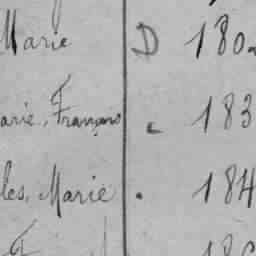 Marie D 180
arie, François 183
les, Marie . 184